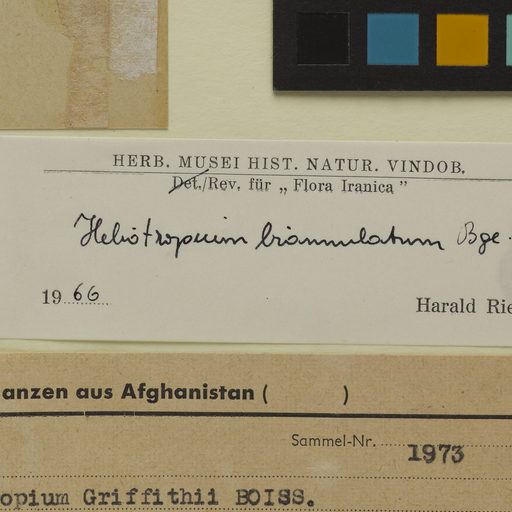 HERB. MUSEI HIST. NATUR. VINDOB.
Det./Rev. für „ Flora Iranica "
Heliotropium biannulatum Bge.
19 66
Harald Rie
anzen aus Afghanistan ( )
Sammel-Nr. 1973
opium Griffithii BOISS.